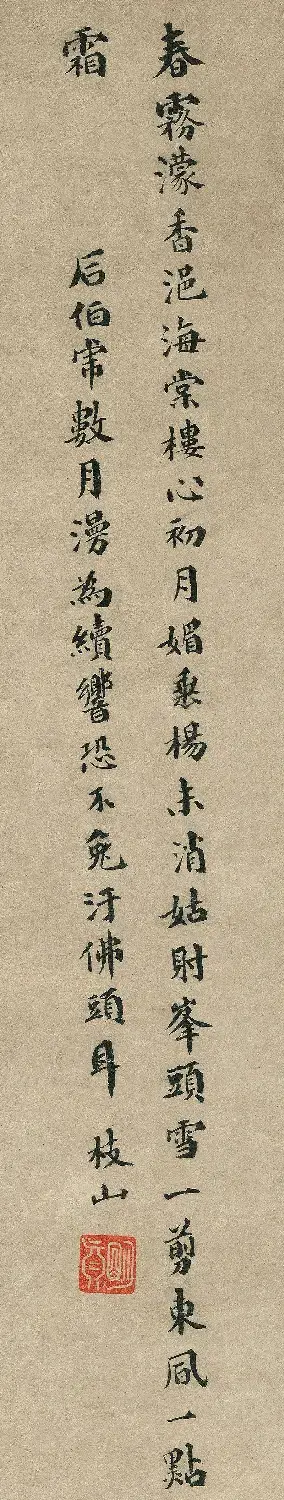 春霧濛香浥海棠樓心初月媚垂楊未消姑射峯頭雪一剪東風一點
霜
后伯數月漫為續響恐不免汙佛頭耳 枝山